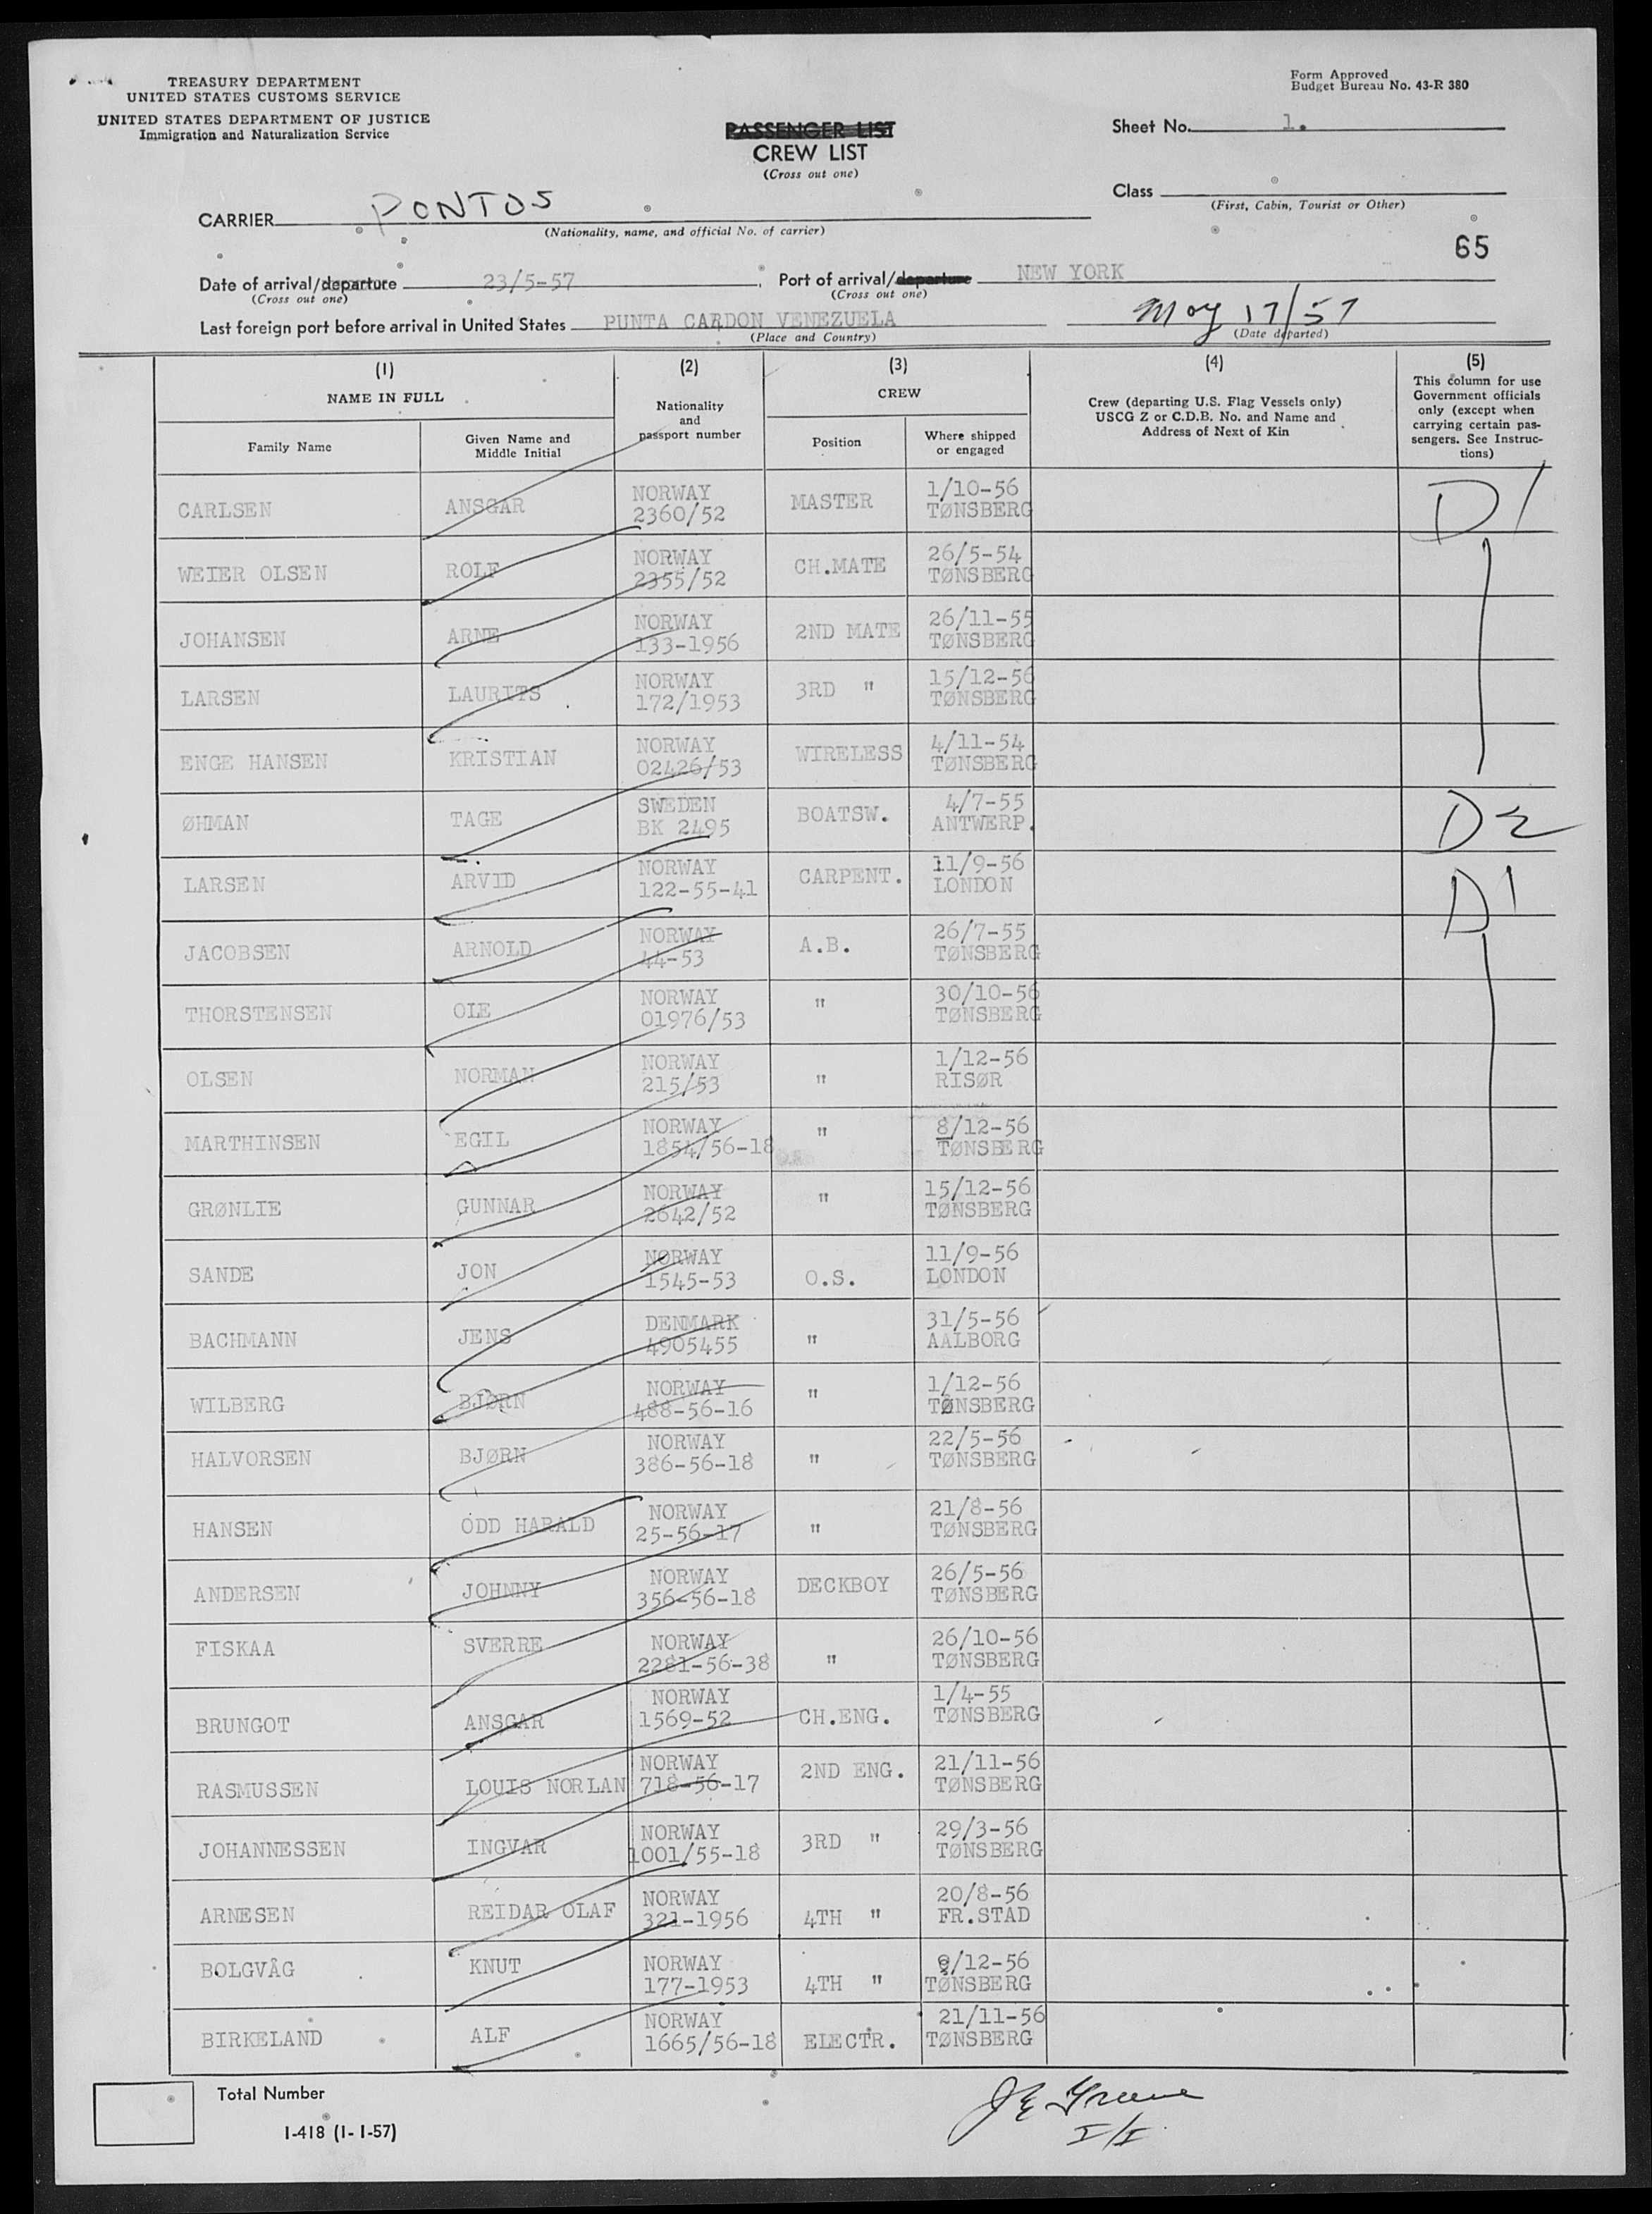 TREASURY DEPARTMENT
UNITED STATES CUSTOMS SERVICE
UNITED STATES DEPARTMENT OF JUSTICE
Immigration and Naturalization Service
PASSENGER LIST
CREW LIST
(Cross out one)
Form Approved
Budget Bureau No. 43-R 380
Sheet No. 1.
Class
(First, Cabin, Tourist or Other)
CARRIER PONTOS
(Nationality, name, and official No. of carrier)
65
Date of arrival/departure 23/5-57, Port of arrival/departure NEW YORK
(Cross out one) (Cross out one)
Last foreign port before arrival in United States PUNTA CARDON VENEZUELA May 17/57
(Place and Country) (Date departed)
(1) (2) (3) (4) (5)
NAME IN FULL
Family Name
Given Name and
Middle Initial
Nationality
and
passport number
CREW
Position
Where shipped
or engaged
Crew (departing U.S. Flag Vessels only)
USCG Z or C.D.B. No. and Name and
Address of Next of Kin
This column for use
Government officials
only (except when
carrying certain pas-
sengers. See Instruc-
tions)
CARLSEN ANSGAR NORWAY 2360/52 MASTER 1/10-56 TØNSBERG D1
WEIER OLSEN ROLF NORWAY 2355/52 CH.MATE 26/5-54 TØNSBERG
JOHANSEN ARNE NORWAY 133-1956 2ND MATE 26/11-55 TØNSBERG
LARSEN LAURITS NORWAY 172/1953 3RD " 15/12-56 TØNSBERG
ENGE HANSEN KRISTIAN NORWAY 02426/53 WIRELESS 4/11-54 TØNSBERG
ØHMAN TAGE SWEDEN BK 2495 BOATSW. 4/7-55 ANTWERP. D2
LARSEN ARVID NORWAY 122-55-41 CARPENT. 11/9-56 LONDON D1
JACOBSEN ARNOLD NORWAY 44-53 A.B. 26/7-55 TØNSBERG
THORSTENSEN OLE NORWAY 01976/53 " 30/10-56 TØNSBERG
OLSEN NORMAN NORWAY 215/53 " 1/12-56 RISØR
MARTHINSEN EGIL NORWAY 1854/56-18 " 8/12-56 TØNSBERG
GRØNLIE GUNNAR NORWAY 2642/52 " 15/12-56 TØNSBERG
SANDE JON NORWAY 1545-53 O.S. 11/9-56 LONDON
BACHMANN JENS DENMARK 4905455 " 31/5-56 AALBORG
WILBERG BJØRN NORWAY 488-56-16 " 1/12-56 TØNSBERG
HALVORSEN BJØRN NORWAY 386-56-18 " 22/5-56 TØNSBERG
HANSEN ODD HARALD NORWAY 25-56-17 " 21/8-56 TØNSBERG
ANDERSEN JOHNNY NORWAY 356-56-18 DECKBOY 26/5-56 TØNSBERG
FISKAA SVERRE NORWAY 2281-56-38 " 26/10-56 TØNSBERG
BRUNGOT ANSGAR NORWAY 1569-52 CH.ENG. 1/4-55 TØNSBERG
RASMUSSEN LOUIS NORLAN NORWAY 718-56-17 2ND ENG. 21/11-56 TØNSBERG
JOHANNESSEN INGVAR NORWAY 1001/55-18 3RD " 29/3-56 TØNSBERG
ARNESEN REIDAR OLAF NORWAY 321-1956 4TH " 20/8-56 FR.STAD
BOLGVÅG KNUT NORWAY 177-1953 4TH " /12-56 TØNSBERG
BIRKELAND ALF NORWAY 1665/56-18 ELECTR. 21/11-56 TØNSBERG
Total Number
I-418 (1-1-57)
J E Greene
I/I